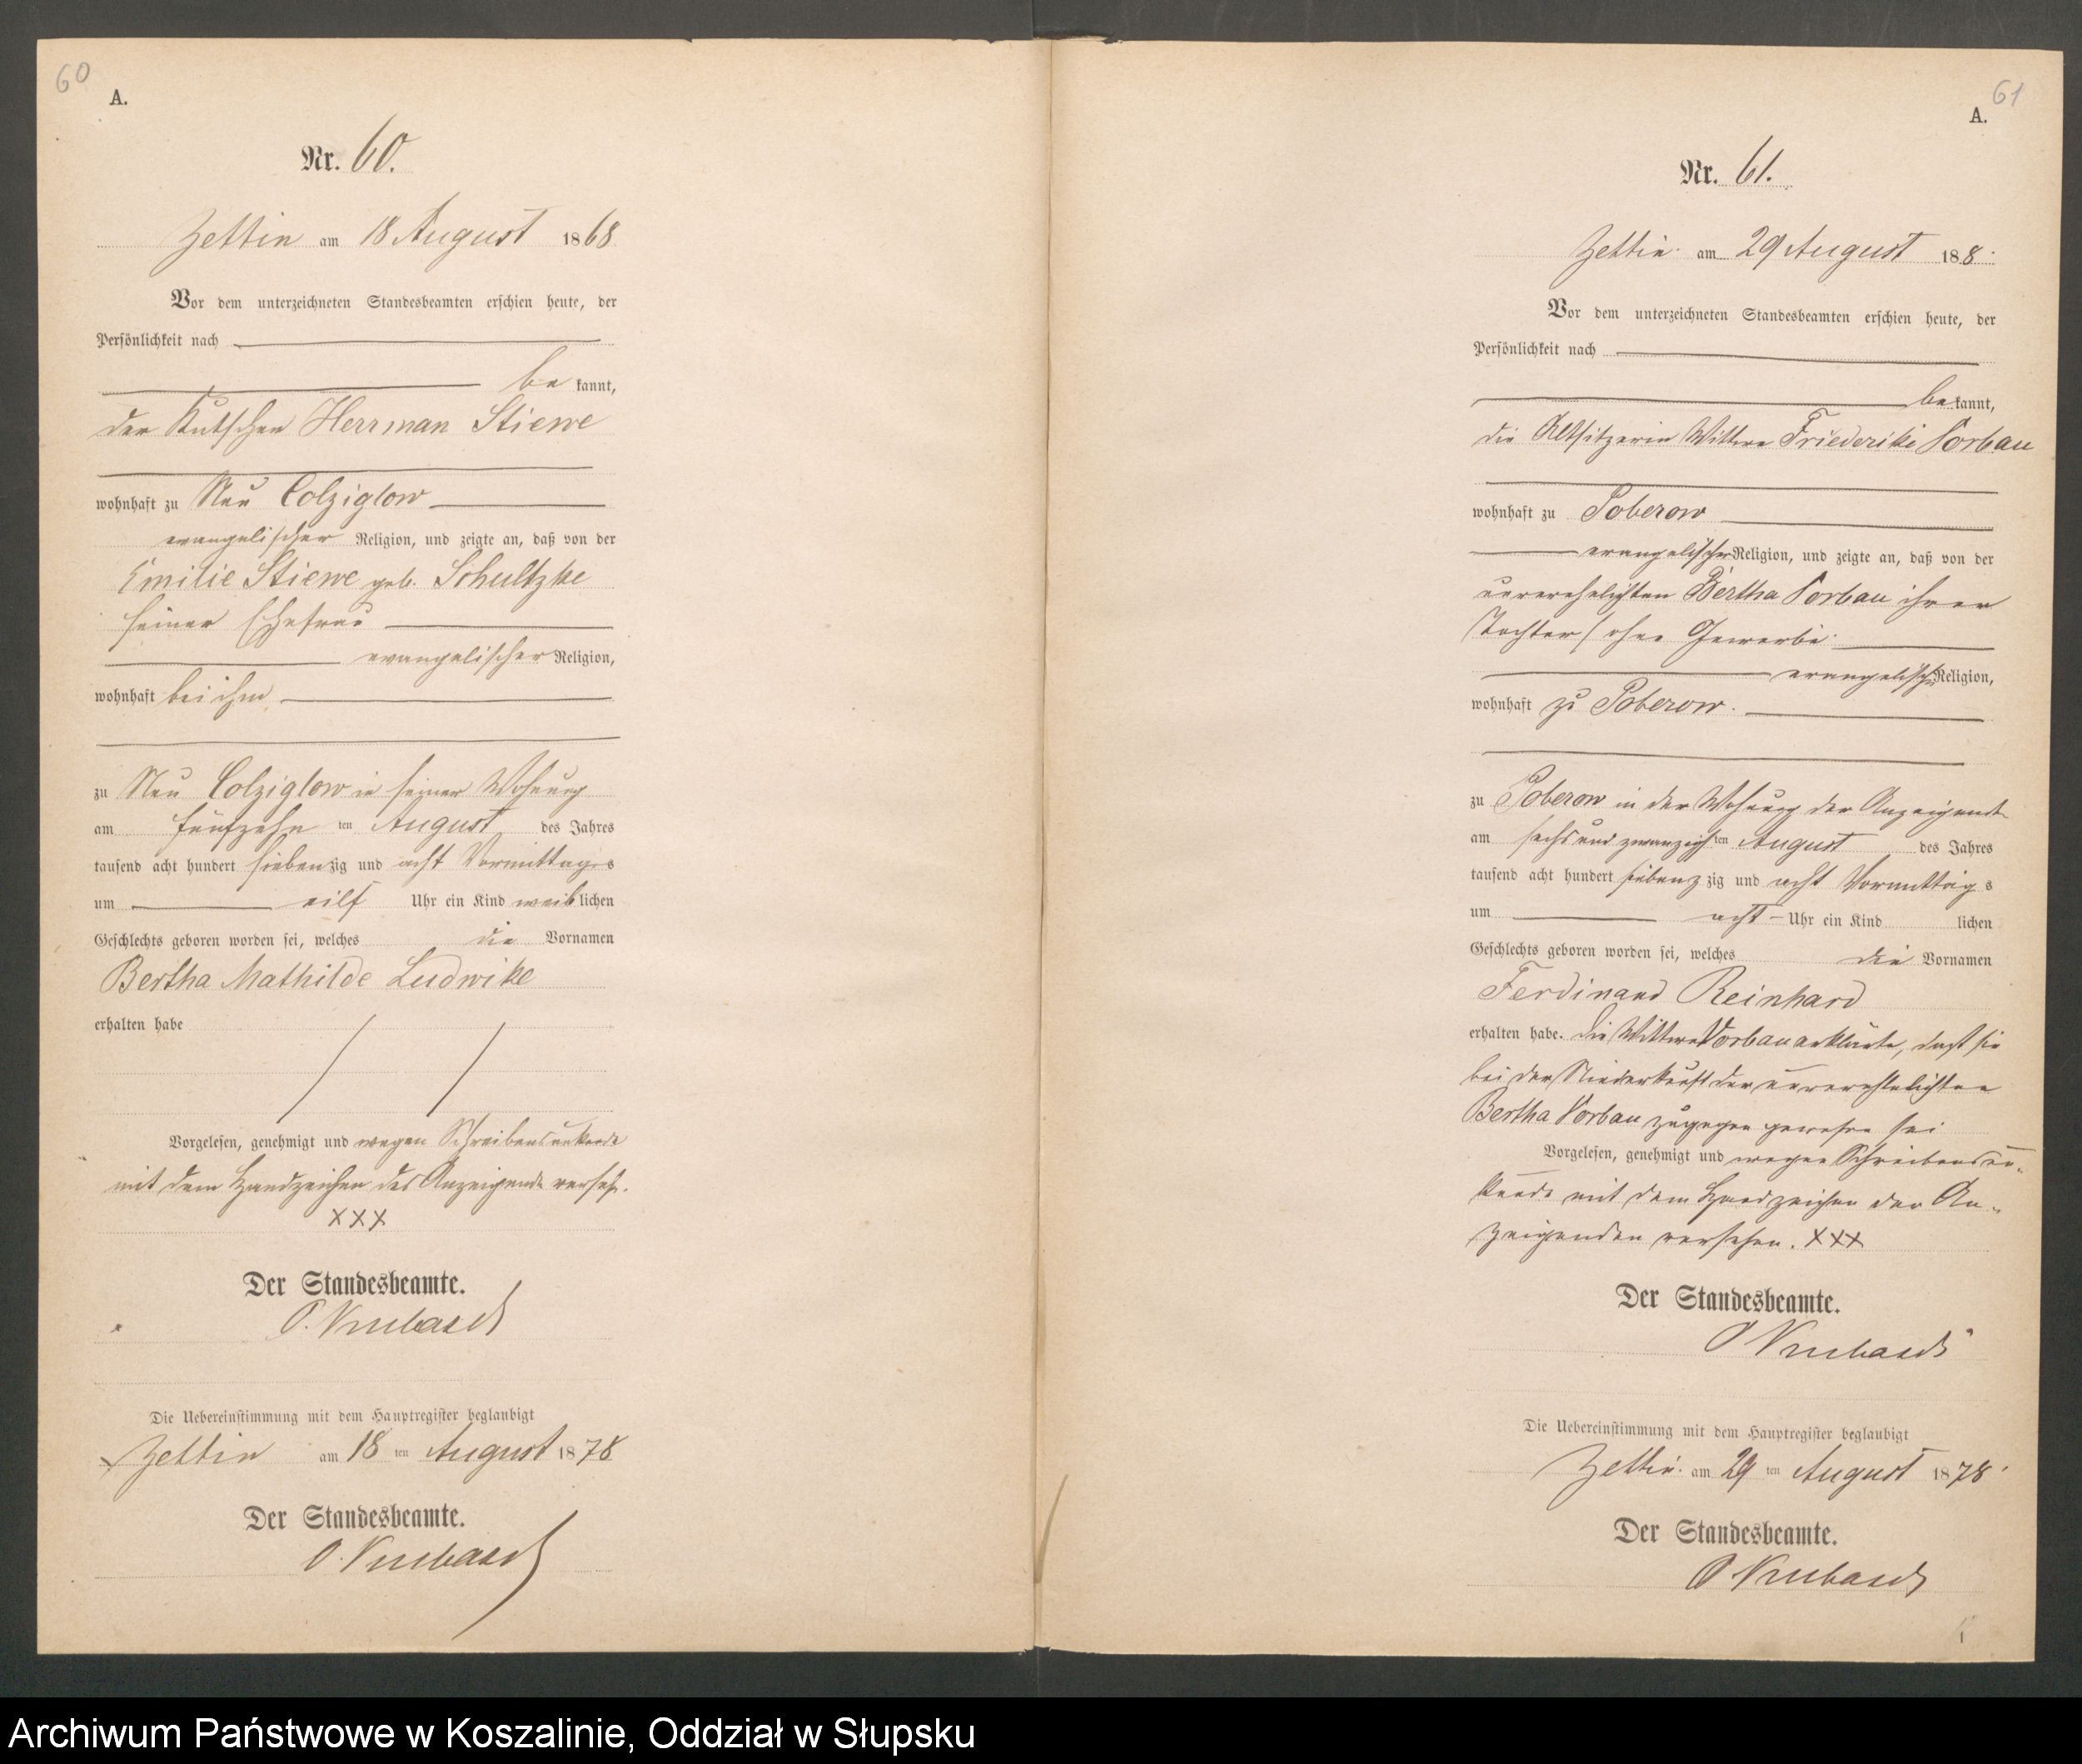 60
A.
Nr. 60.
Zettin am 18 August 1868
Vor dem unterzeichneten Standesbeamten erschien heute, der
Persönlichkeit nach
be kannt,
der Kutscher Herrman Stiewe
wohnhaft zu Neu Colziglow
evangelischer Religion, und zeigte an, daß von der
Emilie Stiewe geb. Schultzke
seiner Ehefrau
evangelischer Religion,
wohnhaft bei ihm
zu Neu Colziglow in seiner Wohnung
am fünfzehn ten August des Jahres
tausend acht hundert siebenzig und acht Vormittags
um eilf Uhr ein Kind weiblichen
Geschlechts geboren worden sei, welches die Vornamen
Bertha Mathilde Ludwike
erhalten habe
Vorgelesen, genehmigt und wegen Schreibensunkunde
mit dem Handzeichen des Anzeigende verseh.
XXX
Der Standesbeamte.
Die Uebereinstimmung mit dem Hauptregister beglaubigt
Zettin am 18 ten August 1878
Der Standesbeamte.
61
A.
Nr. 61.
Zettin am 29 August 188
Vor dem unterzeichneten Standesbeamten erschien heute, der
Persönlichkeit nach
be kannt,
die Altsitzerin Wittwe Friederike Vorbau
wohnhaft zu Poberow
evangelischer Religion, und zeigte an, daß von der
unverehelichten Bertha Vorbau ihrer
Tochter ohne Gewerbe
evangelischer Religion,
wohnhaft zu Poberow.
zu Poberow in der Wohnung der Anzeigende
am sechs und zwanzigsten August des Jahres
tausend acht hundert siebenz zig und acht Vormittags
um acht Uhr ein Kind lichen
Geschlechts geboren worden sei, welches die Vornamen
Ferdinand Reinhard
erhalten habe. Die Wittwe Vorbau erklärte, daß sie
bei der Niederkunft der unverehelichten
Bertha Vorbau zugegen gewesen sei
Vorgelesen, genehmigt und wegen Schreibensun-
kunde mit dem Handzeichen der An-
zeigenden versehen. XXX
Der Standesbeamte.
Die Uebereinstimmung mit dem Hauptregister beglaubigt
Zettin am 29 ten August 1878
Der Standesbeamte.
Archiwum Państwowe w Koszalinie, Oddział w Słupsku